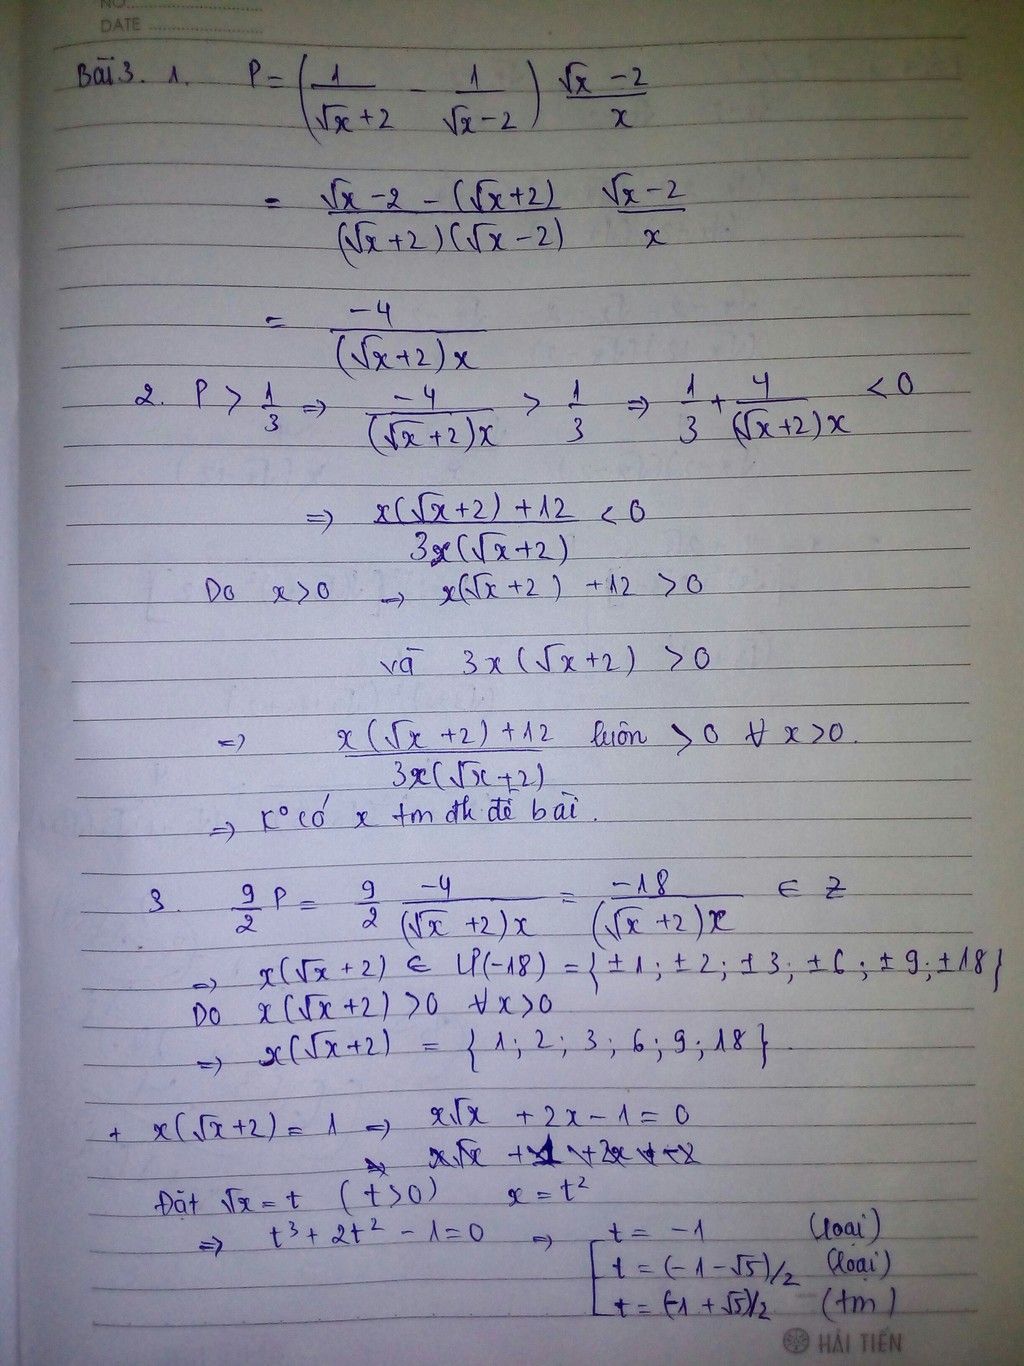 NO.
DATE
Bài 3. 1. P = (1/(√x+2) - 1/(√x-2)) (√x-2)/x
= (√x-2-(√x+2))/((√x+2)(√x-2)) (√x-2)/x
= -4/((√x+2)x)
2. P > 1/3 => -4/((√x+2)x) > 1/3 => 1/3 + 4/((√x+2)x) < 0
=> (x(√x+2)+12)/(3x(√x+2)) < 0
Do x>0 => x(√x+2) +12 >0
và 3x(√x+2) >0
=> (x(√x+2)+12)/(3x(√x+2)) luôn >0 ∀ x>0.
=> K° có x tm đk đề bài.
3. 9/2 P = 9/2 -4/((√x+2)x) = -18/((√x+2)x) ∈ Z
=> x(√x+2) ∈ Ư(-18) = {±1; ±2; ±3; ±6; ±9; ±18}
Do x(√x+2) >0 ∀x>0
=> x(√x+2) = {1; 2; 3; 6; 9; 18}.
+ x(√x+2) = 1 => x√x + 2x - 1 = 0
Đặt √x = t (t>0) x = t²
=> t³ + 2t² - 1 = 0 => t = -1 (loại)
t = (-1-√5)/2 (loại)
t = (-1+√5)/2 (tm)
HẢI TIẾN